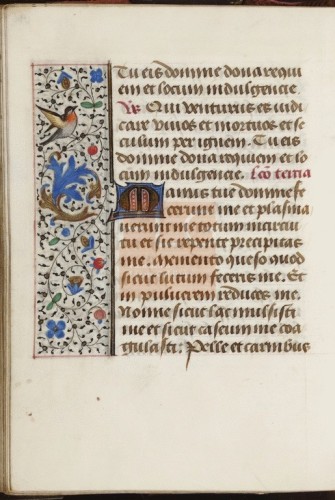 Tu eis domine dona requi
em et locum indulgencie.
Vs. Qui venturus es iudi
care vivos et mortuos et se
culum per ignem. Tu eis
domine dona requiem et lo
cum indulgencie. Leo tertia
Manus tue domine fe
cerunt me et plasma
verunt me totum in circu
tu et sic repente precipitas
me. Memento queso quod
sicut lutum feceris me. Et
in pulverem reduces me.
Nonne sicut lac mulsisti
me et sicut caseum me coa
gulasti. Pelle et carnibus